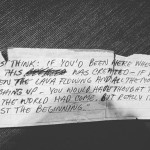 THINK: IF YOU'D BEEN HERE WHEN
THIS WAS CREATED - IF
THE LAVA FLOWING AND ALL THE
UP - YOU WOULD HAVE THOUGHT T
THE WORLD HAD COME. BUT REALLY I
ST THE BEGINNING.